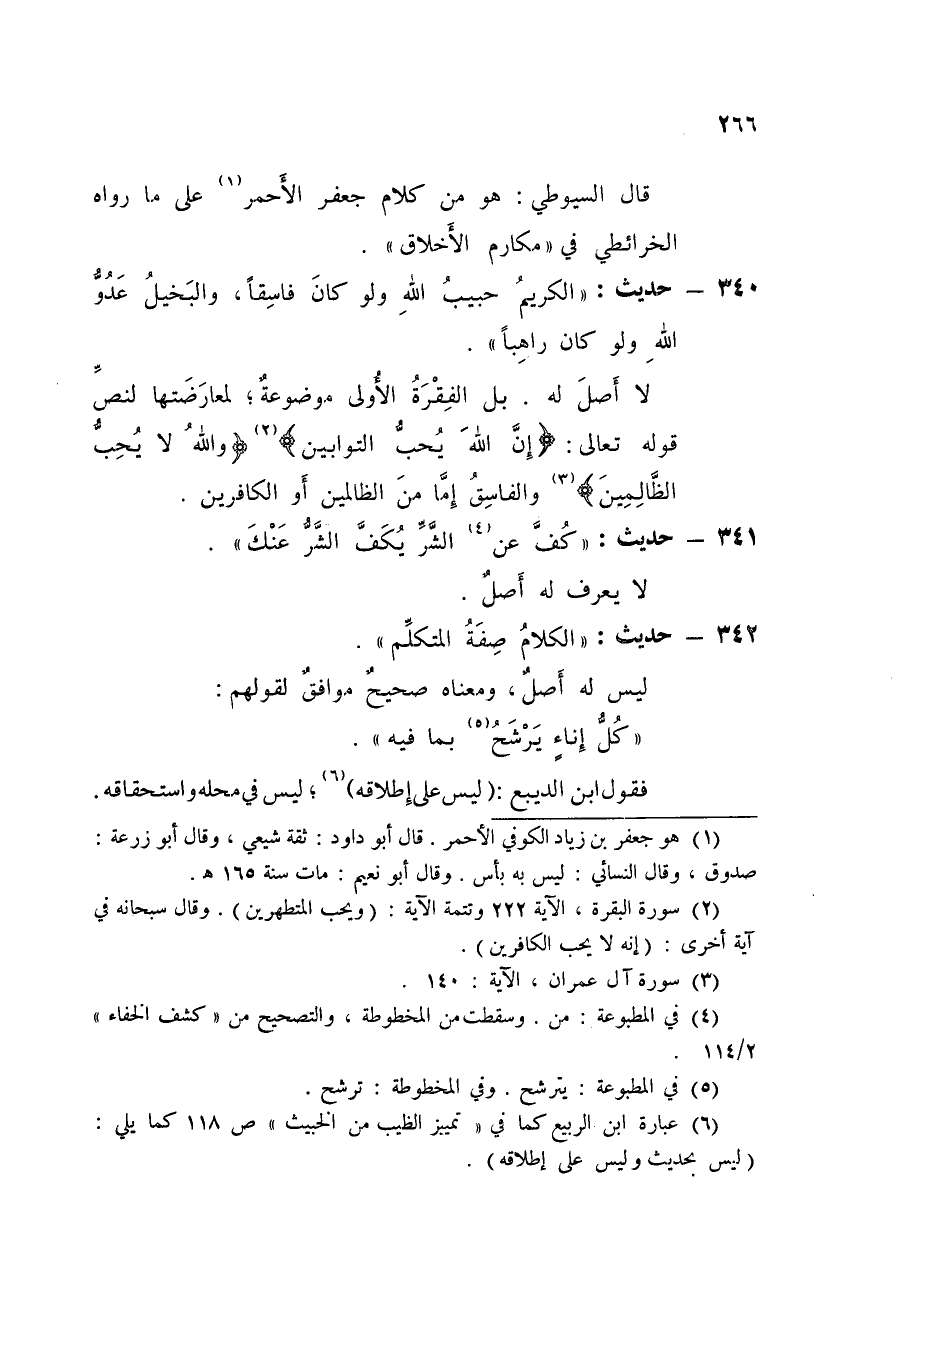 ٢٦٦
قال السيوطي : هو من كلام جعفر الأَحمر(١) على ما رواه
الخرائطي في «مكارم الأَخلاق» .
٣٤٠ – حديث : «الكريمُ حبيبُ اللهِ ولو كانَ فاسِقاً، والبَخيلُ عَدُوُّ
اللهِ ولو كان راهِباً» .
لا أَصلَ له . بل الفِقْرَةُ الأُولى موضوعةٌ؛ لمعارَضَتها لنصِّ
قوله تعالى: ﴿إِنَّ اللهَ يُحبُّ التوابين﴾(٢) ﴿واللهُ لا يُحِبُّ
الظَّالِمِينَ﴾(٣) والفاسِقُ إِمَّا منَ الظالمين أَو الكافرين .
٣٤١ – حديث : «كُفَّ عن(٤) الشَّرِّ يُكَفَّ الشَّرُّ عَنْكَ» .
لا يعرف له أَصلٌ .
٣٤٢ – حديث : «الكلامُ صِفَةُ المتكلِّم» .
ليس له أَصلٌ، ومعناه صحيحٌ موافقٌ لقولهم :
«كُلُّ إِناءٍ يَرْشَحُ(٥) بما فيه» .
فقول ابن الديبع :(ليس على إطلاقه)(٦)؛ ليس في محله واستحقاقه.
(١) هو جعفر بن زياد الكوفي الأحمر . قال أبو داود : ثقة شيعي ، وقال أبو زرعة :
صدوق ، وقال النسائي : ليس به بأس . وقال أبو نعيم : مات سنة ١٦٥ هـ .
(٢) سورة البقرة ، الآية ٢٢٢ وتتمة الآية : ( ويحب المتطهرين ) . وقال سبحانه في
آية أخرى : ( إنه لا يحب الكافرين ) .
(٣) سورة آل عمران ، الآية : ١٤٠ .
(٤) في المطبوعة : من . وسقطت من المخطوطة ، والتصحيح من « كشف الخفاء »
١١٤/٢ .
(٥) في المطبوعة : يترشح . وفي المخطوطة : ترشح .
(٦) عبارة ابن الربيع كما في « تمييز الطيب من الخبيث » ص ١١٨ كما يلي :
( ليس بحديث وليس على إطلاقه ) .